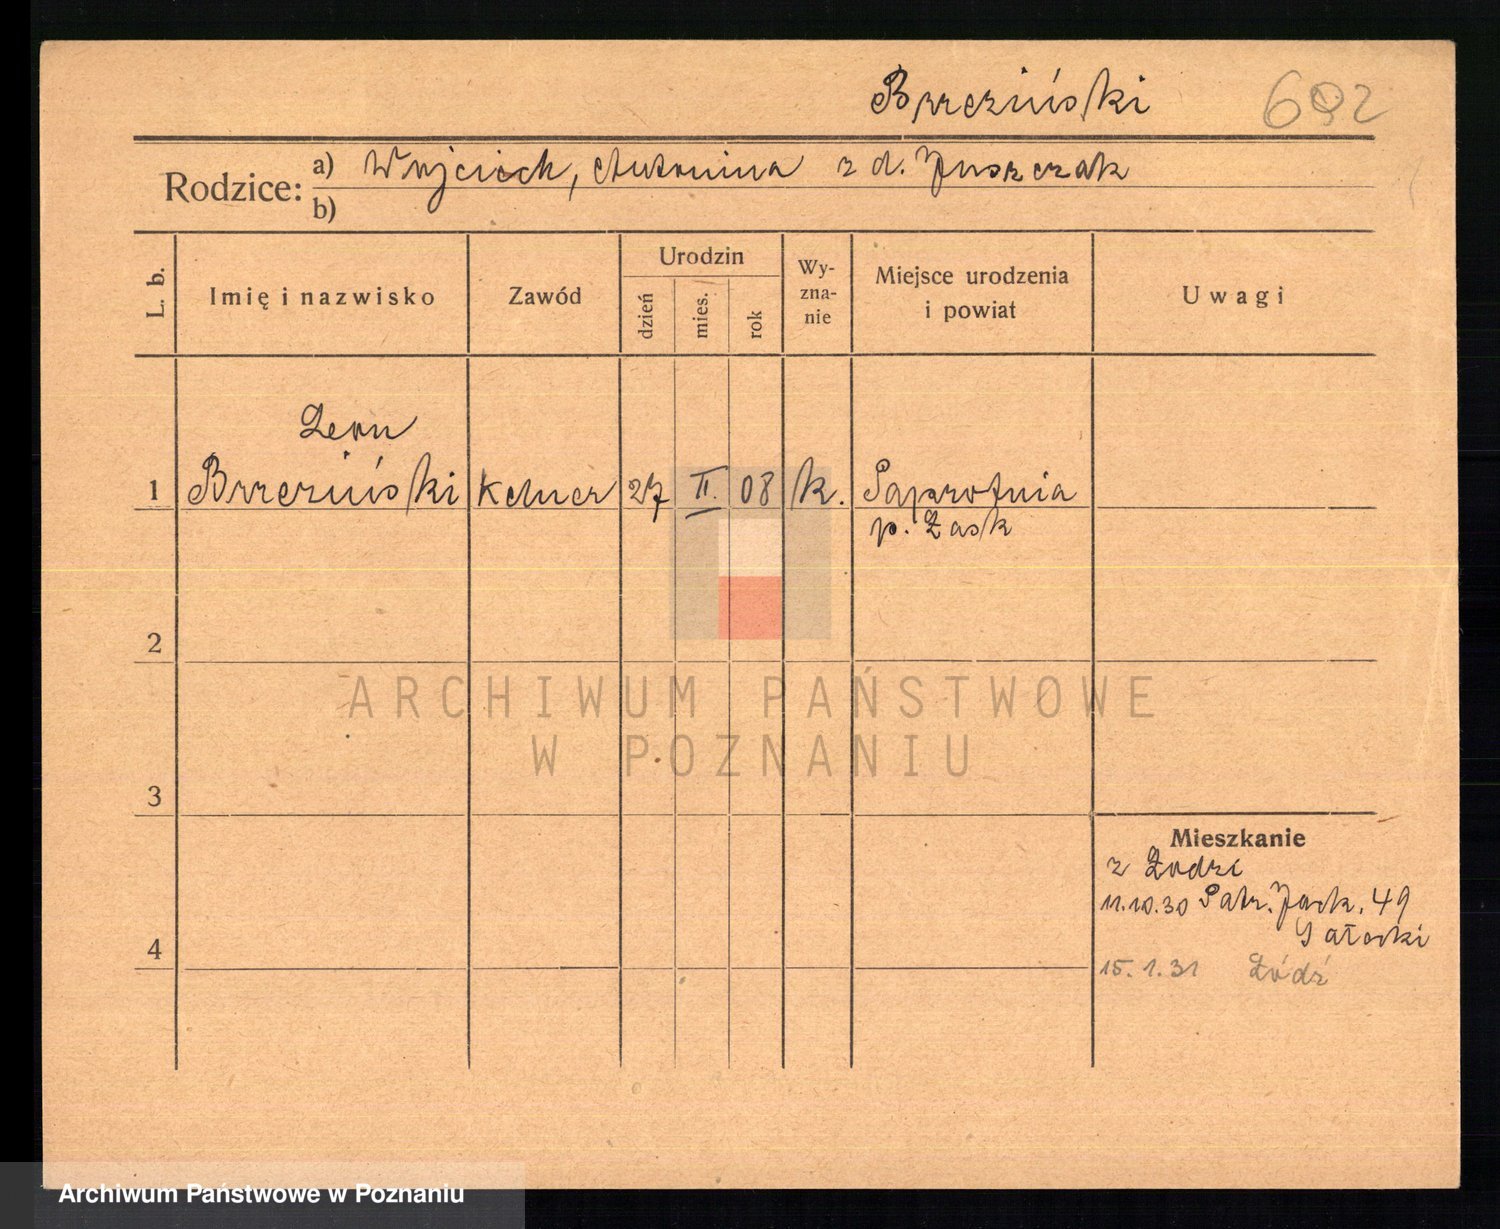 Brzeziński 692
Rodzice: a) Wojciech, Antonina z d. Juszczak
b)
L. b. Imię i nazwisko Zawód Urodzin dzień mies. rok Wy-zna-nie Miejsce urodzenia i powiat Uwagi
Leon
1 Brzeziński Kelner 27 II. 08 k. Paprotnia
p. Łask
2
ARCHIWUM PAŃSTWOWE
W POZNANIU
3
Mieszkanie
z Łodzi
11.10.30 Patr. Jack. 49
4
15.1.31 Łódź
Archiwum Państwowe w Poznaniu